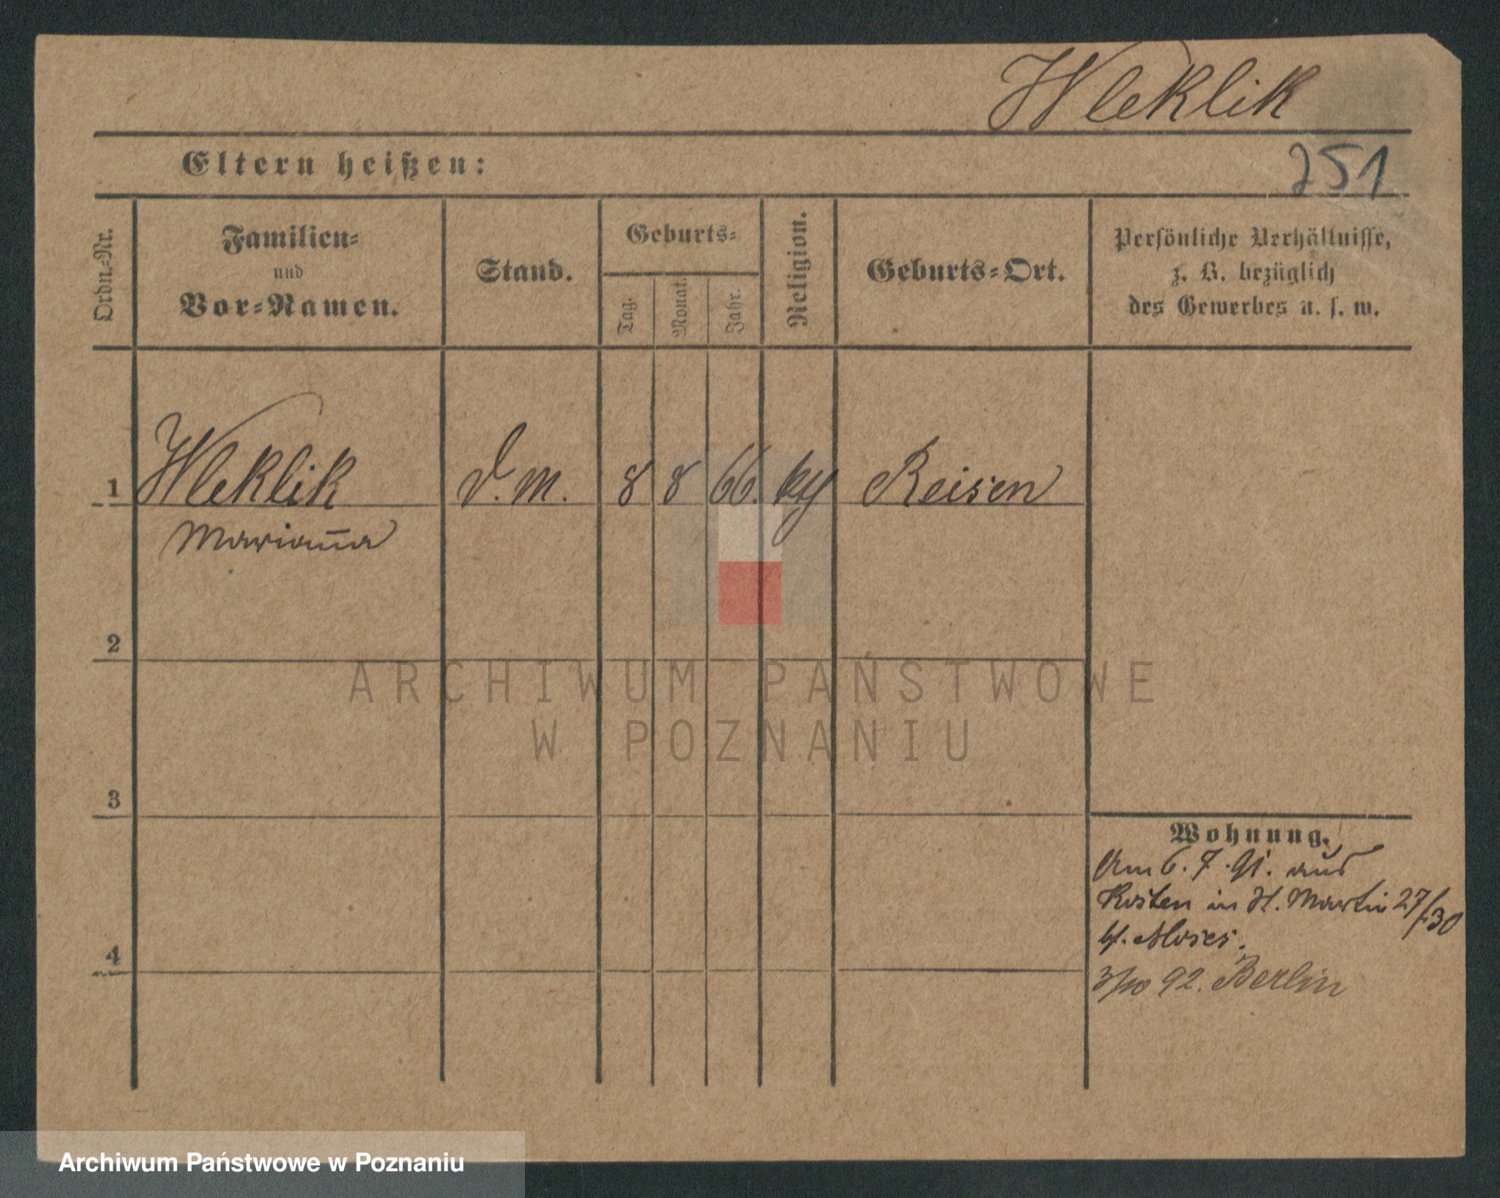 Wleklik
Eltern heißen:
251
Ordn.-Nr.
Familien-
und
Vor-Namen.
Stand.
Geburts-
Tag.
Monat.
Jahr.
Religion.
Geburts-Ort.
Persönliche Verhältnisse,
z. B. bezüglich
des Gewerbes u. s. w.
1 Wleklik d. m. 8 8 66. Reisen
Marianna
2
ARCHIWUM PAŃSTWOWE
W POZNANIU
3
Wohnung.
Am 6. 7. 91. aus
Kosten in St. Martin 27/30
bf. Moses.
4
3/10 92. Berlin
Archiwum Państwowe w Poznaniu